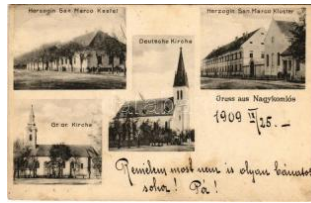 Herzogin San Marco Kastel
Deutsche Kirche
Herzogin San Marco Kloster
Gr. or. Kirche
Gruss aus Nagykomlós
1909 II/25. –
Remélem most nem is olyan bánatos
sohor! Pá!